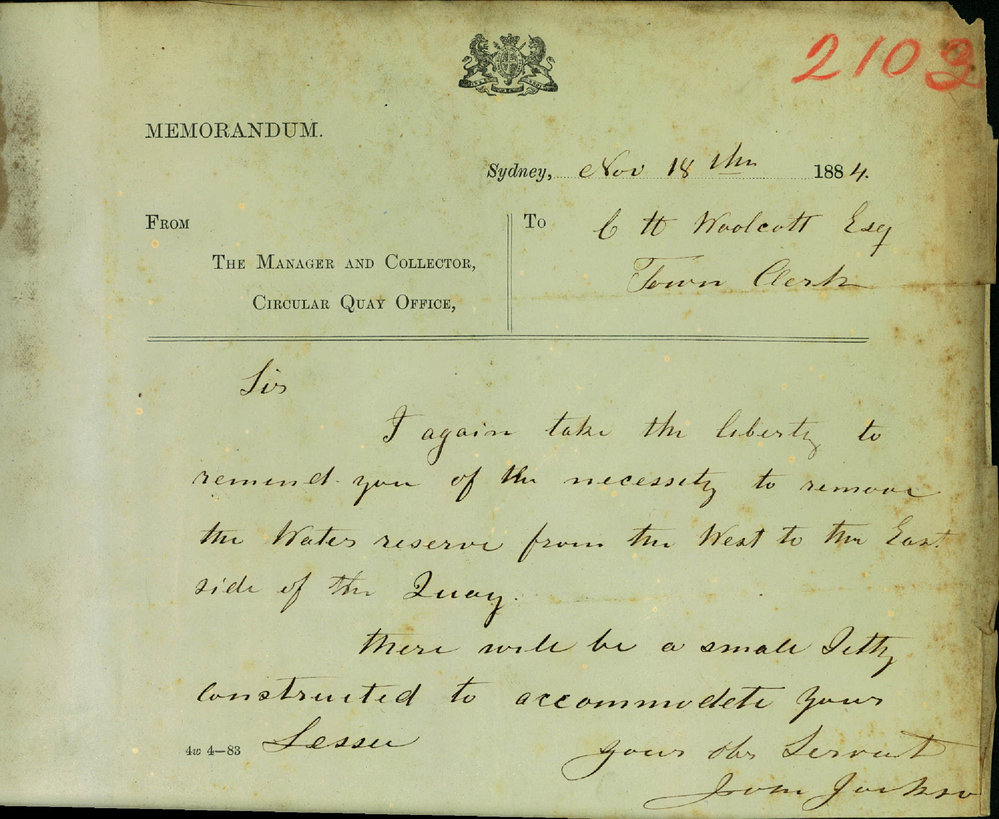 2103
MEMORANDUM.
Sydney, Nov 18th 1884.
FROM
THE MANAGER AND COLLECTOR,
CIRCULAR QUAY OFFICE,
TO
C H Woolcott Esq
Town Clerk
Sir
I again take the liberty to
remind you of the necessity to remove
the Water reserve from the West to the East
side of the Quay.
there will be a small Jetty
constructed to accommodate your
Lessee
your obt Servant
Jackson
4w 4—83